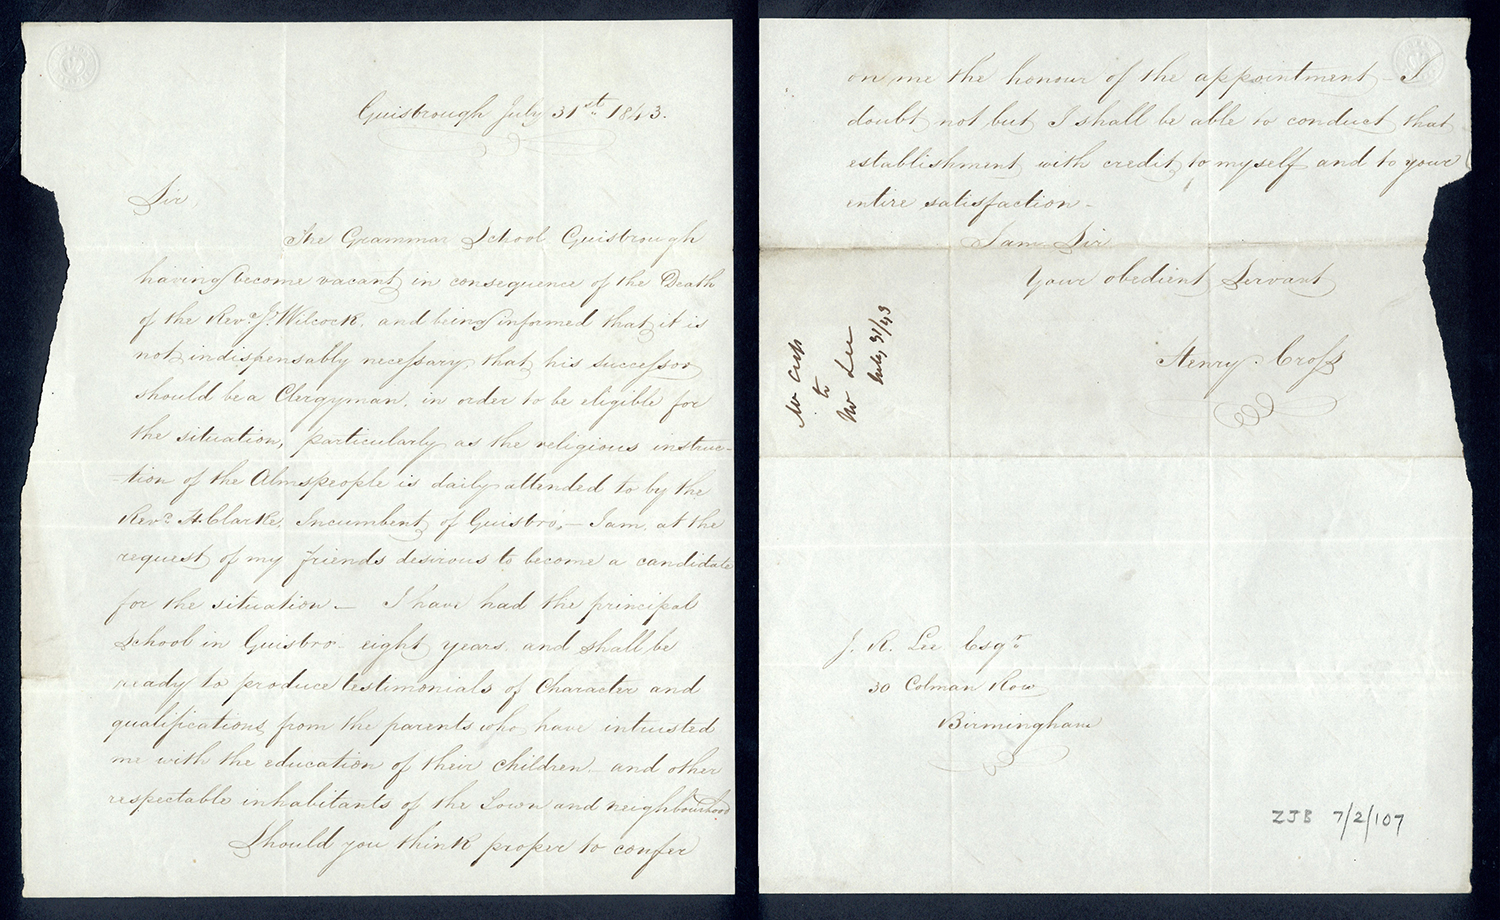 Guisbrough July 31st 1843.
Sir,
The Grammar School Guisbrough
having become vacant in consequence of the Death
of the Revd. J. Wilcock, and being informed that it is
not indispensably necessary that his successor
should be a Clergyman, in order to be eligible for
the situation, particularly as the religious instruc-
-tion of the Almspeople is daily attended to by the
Revd. H. Clarke, Incumbent of Guisbro, - I am, at the
request of my friends desirous to become a candidate
for the situation - I have had the principal
School in Guisbro - eight years, and shall be
ready to produce testimonials of Character and
qualifications from the parents who have intrusted
me with the education of their children - and other
respectable inhabitants of the Town and neighbourhood
Should you think proper to confer
on me the honour of the appointment - I
doubt not but I shall be able to conduct that
establishment with credit to myself and to your
entire satisfaction -
I am Sir
Your obedient Servant
Henry Cross
Mr Cross
to
Mr Lee
July 31/43
J. R. Lee Esqr
30 Colman Row
Birmingham
ZJB 7/2/107